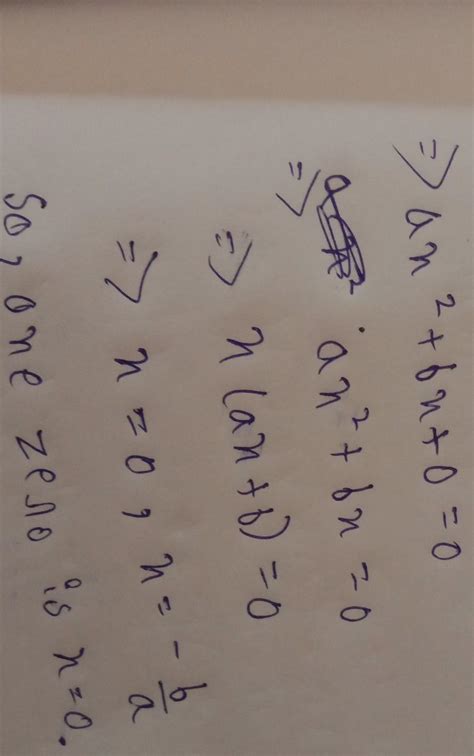 => ax² + bx + 0 = 0
=> ax² + bx = 0
=> x (ax + b) = 0
=> x = 0, x = -b/a
So, one zero is x = 0.